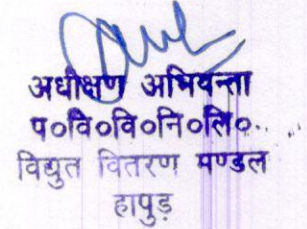 अधीक्षण अभियन्ता
प०वि०वि०नि०लि०
विद्युत वितरण मण्डल
हापुड़